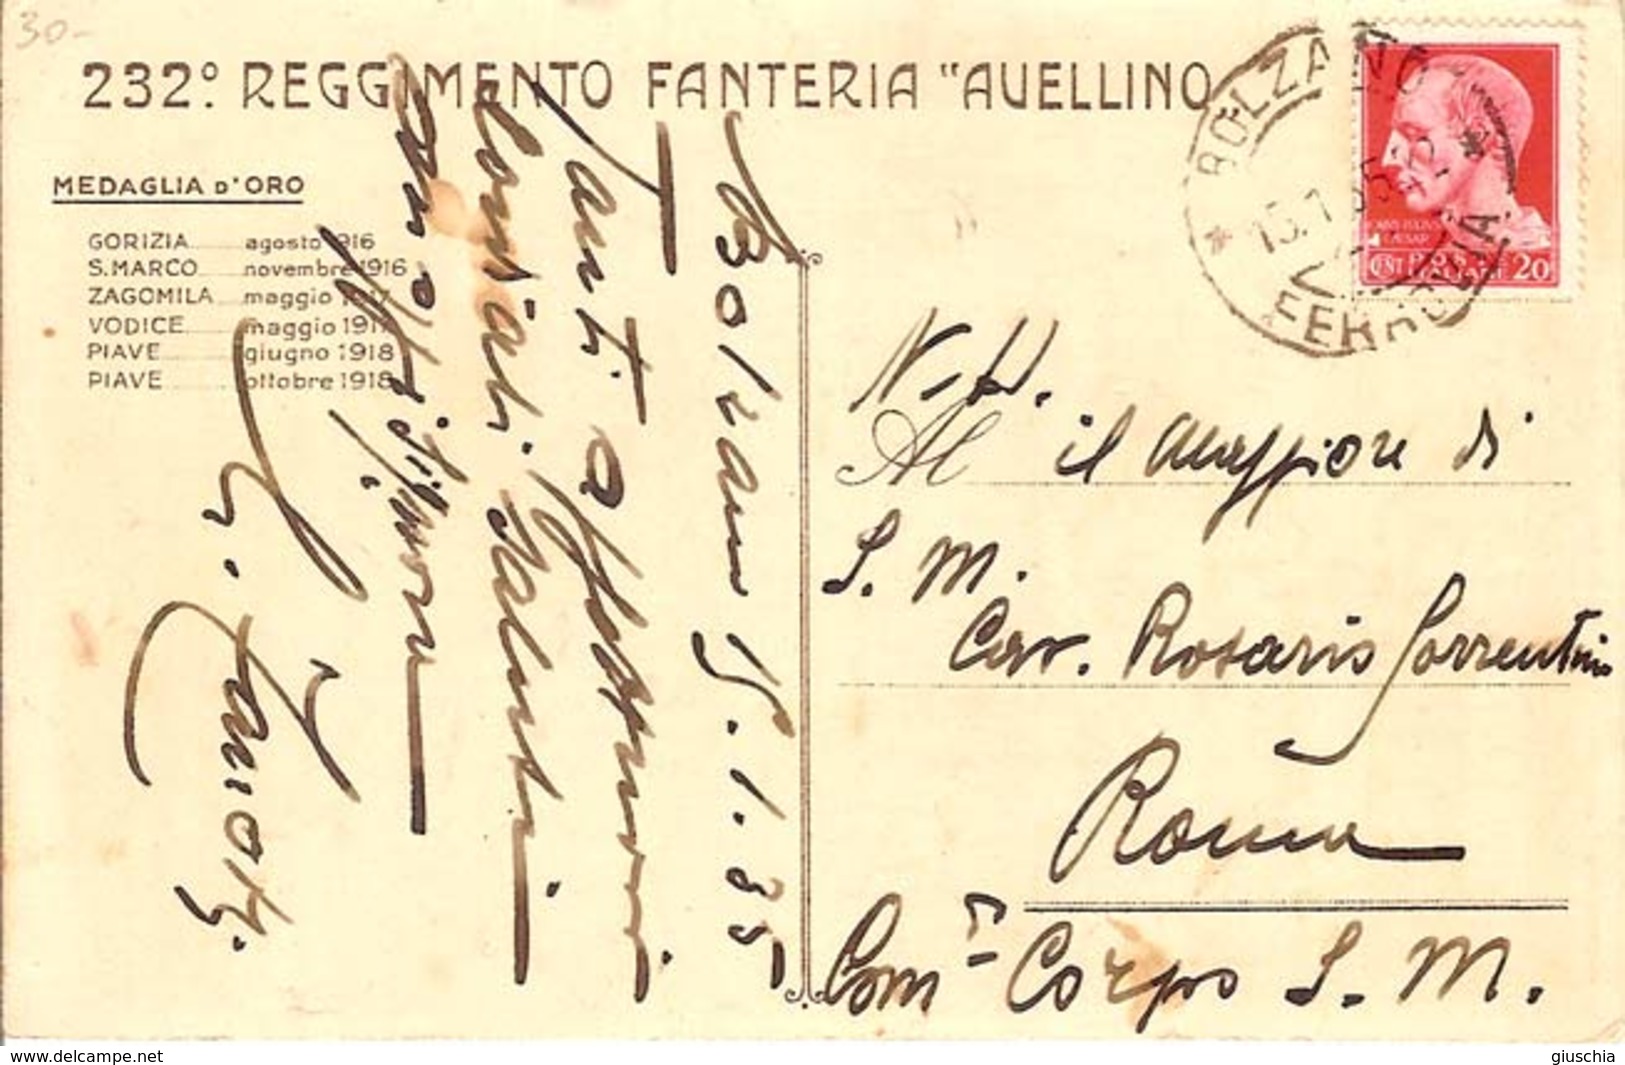 30-
232° REGGIMENTO FANTERIA "AVELLINO
MEDAGLIA D'ORO
GORIZIA agosto 1916
S. MARCO novembre 1916
ZAGOMILA maggio 1917
VODICE maggio 1917
PIAVE giugno 1918
PIAVE ottobre 1918
Bolzano 15.1.35
Tanti affettuosi
cordiali saluti
Zanotti
BOLZANO
15.1.35
FERROVIA
CAIVS IVLIVS
CAESAR
CENT POSTE ITALIANE 20
N. H.
Al il Maggiore di
S. M.
Cav. Rosario Sorrentino
Roma
Com Corpo S. M.
www.delcampe.net
giuschia